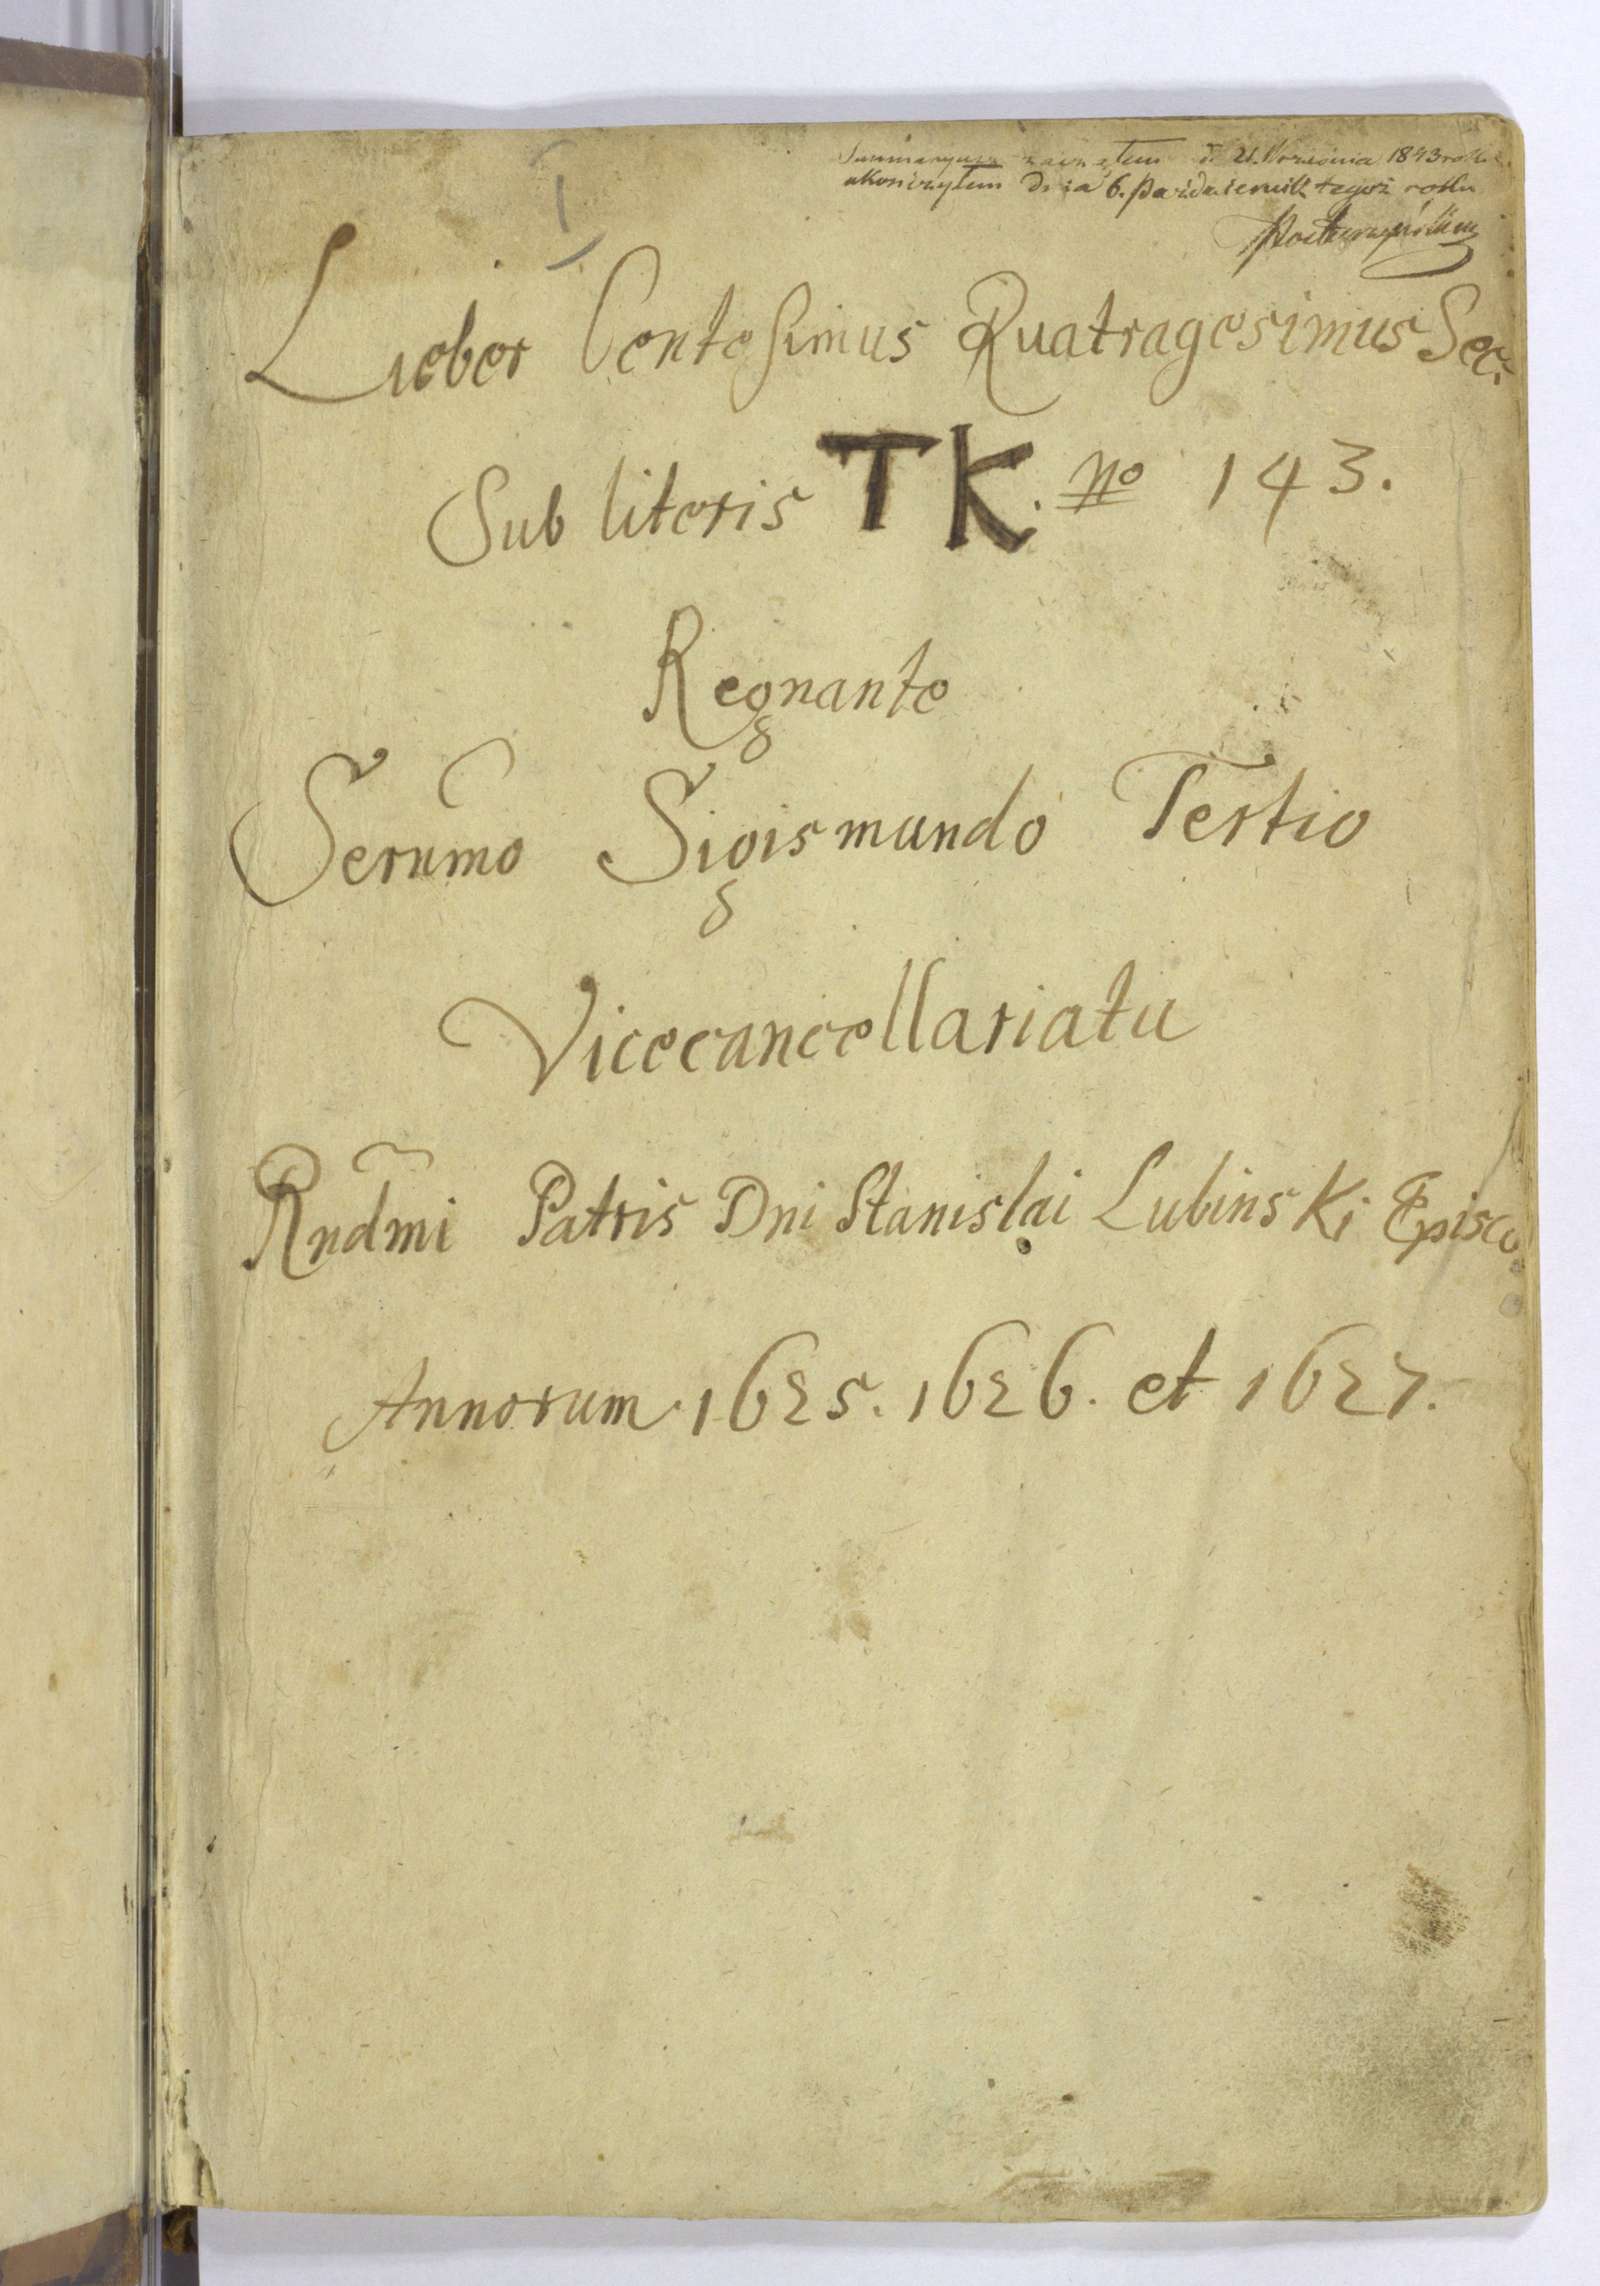 Summaryusz zacząłem d. 21. Września 1843 roku.
ukończyłem dnia 6. Października tegoż roku
I
Lieber Centesimus Quatragesimus Sec:
Sub literis TK. No 143.
Regnante
Serūmo Sigismundo Tertio
Vicecancellariatu
Rndm̃i Patris Dni Stanislai Lubinski Episco
Annorum. 1625. 1626. et 1627.